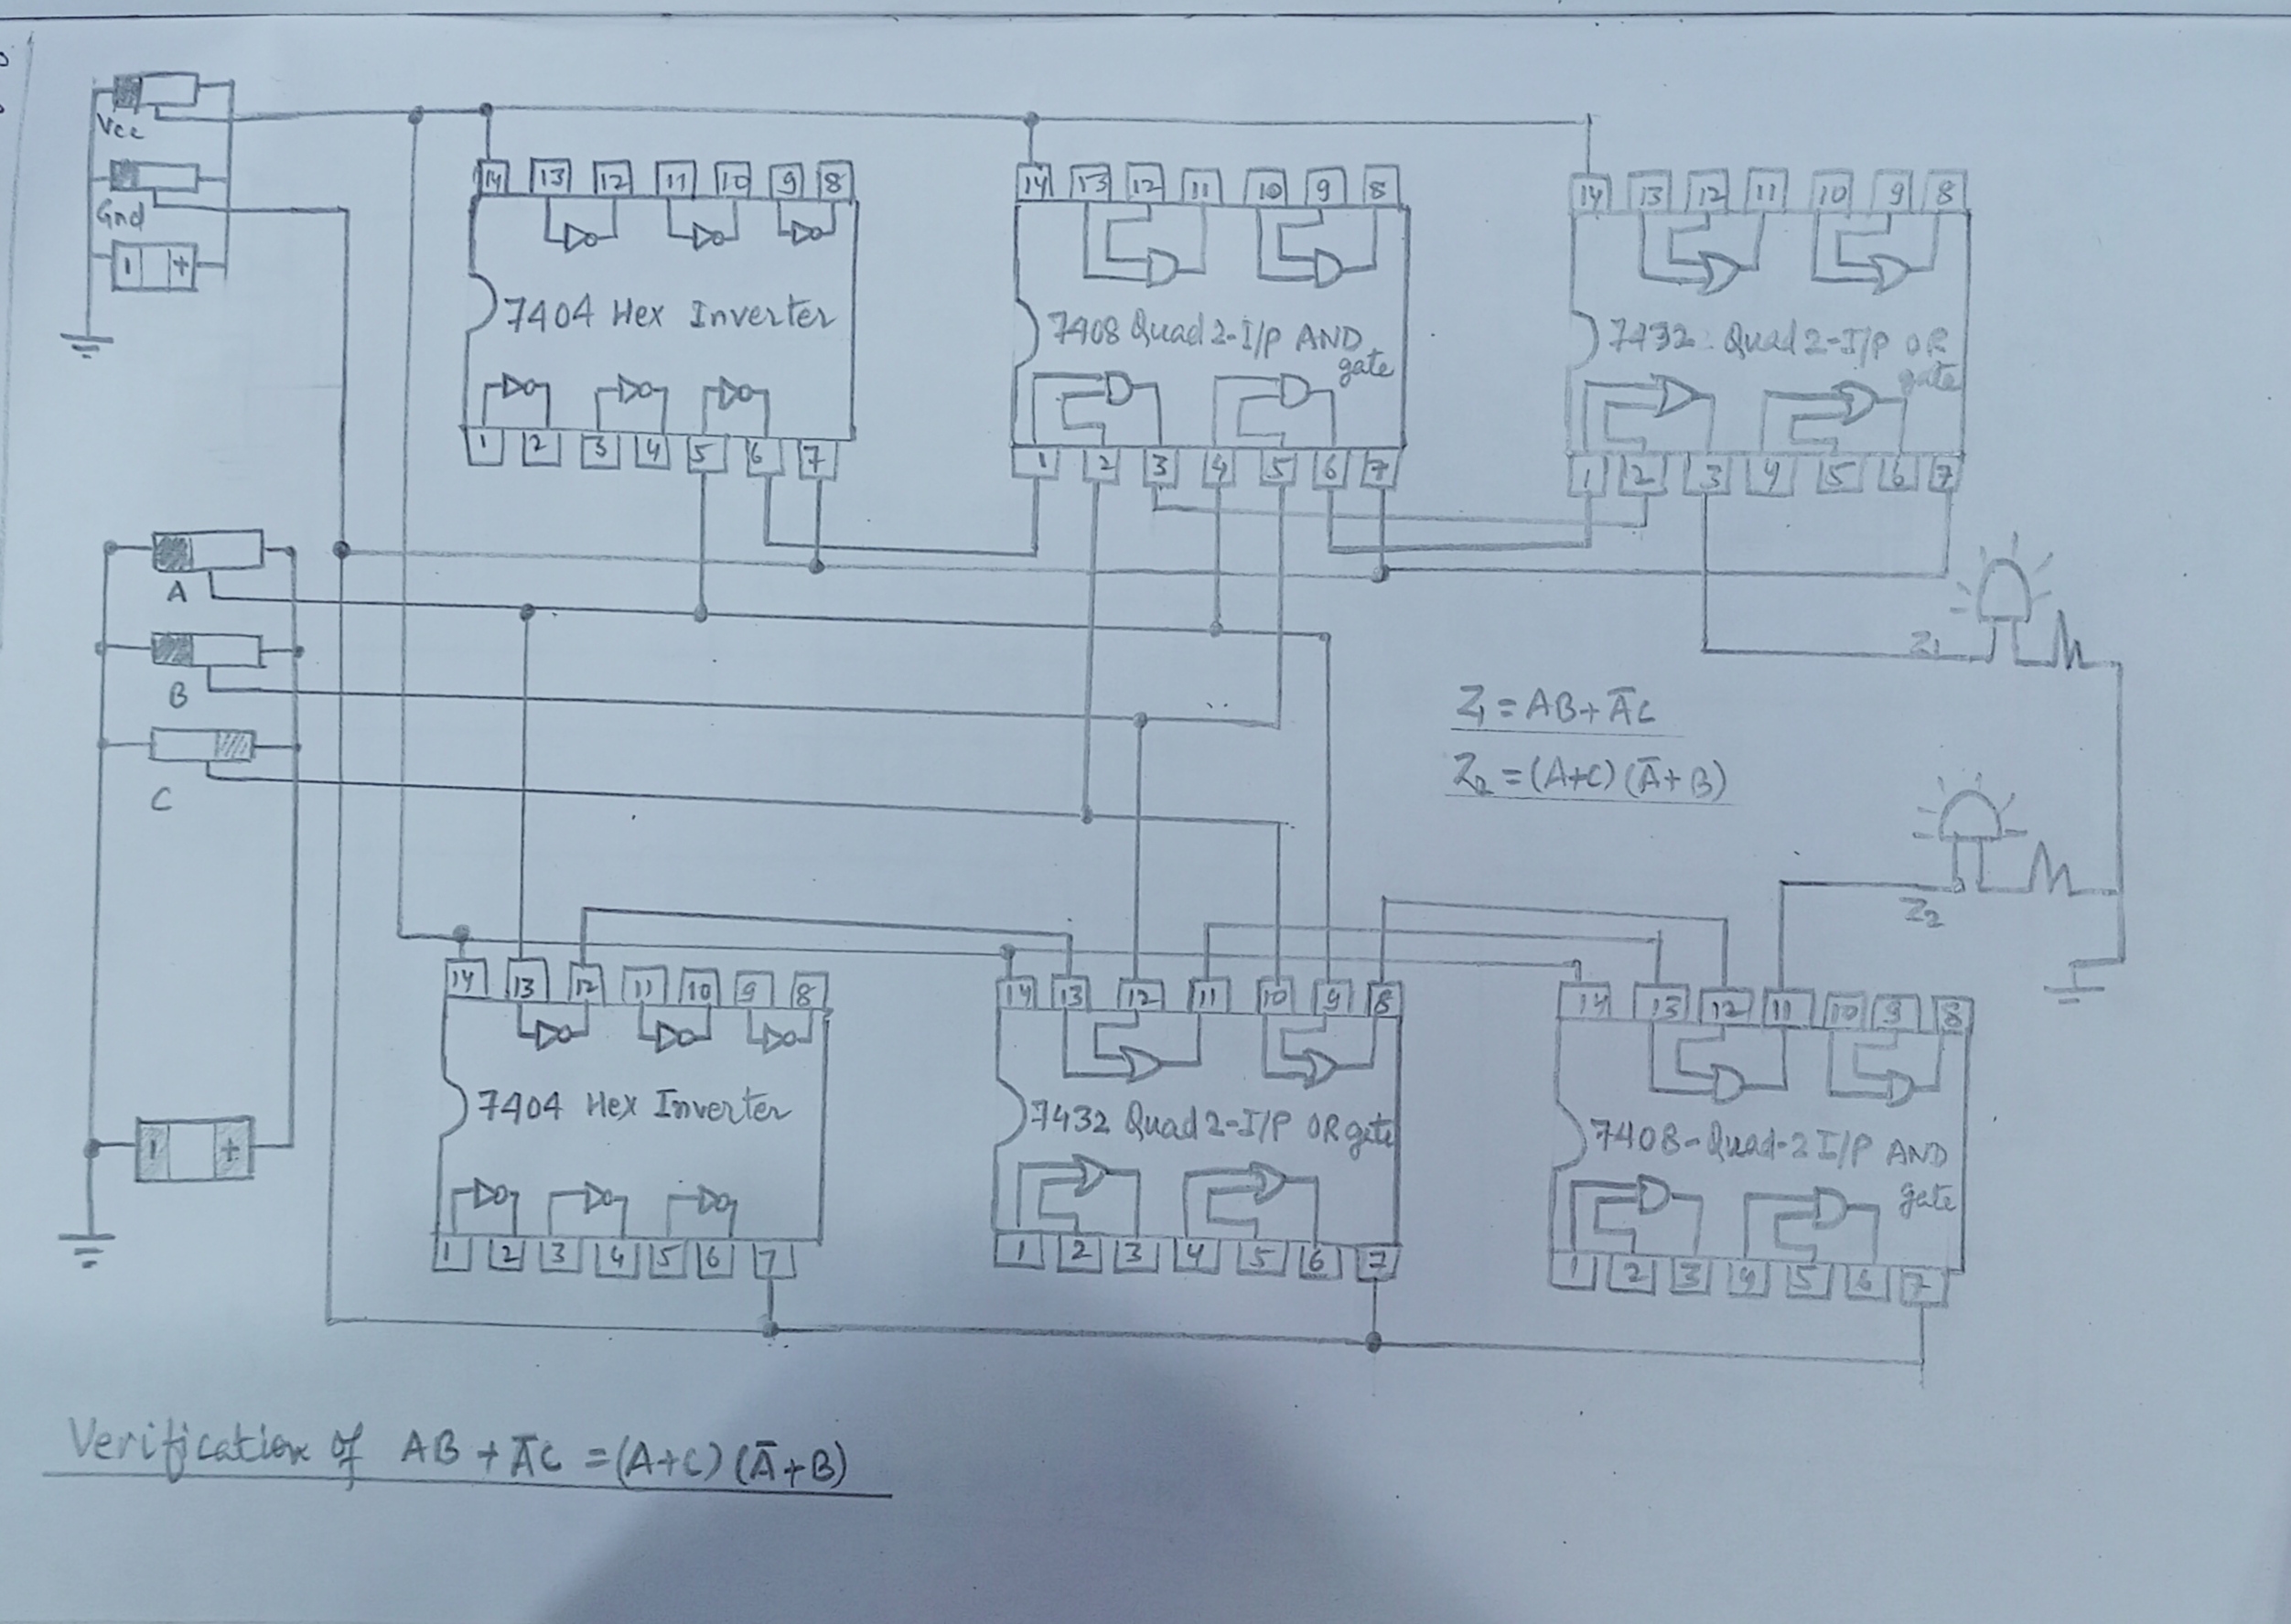 Vcc
Gnd
- +
14 13 12 11 10 9 8
7404 Hex Inverter
1 2 3 4 5 6 7
14 13 12 11 10 9 8
7408 Quad 2-I/P AND
gate
1 2 3 4 5 6 7
14 13 12 11 10 9 8
7432 Quad 2-I/P OR
gate
1 2 3 4 5 6 7
A
B
C
- +
Z1
Z1 = AB + A̅C
Z2 = (A+C) (A̅+B)
Z2
14 13 12 11 10 9 8
7404 Hex Inverter
1 2 3 4 5 6 7
14 13 12 11 10 9 8
7432 Quad 2-I/P OR gate
1 2 3 4 5 6 7
14 13 12 11 10 9 8
7408-Quad-2 I/P AND
gate
1 2 3 4 5 6 7
Verification of AB + A̅C = (A+C) (A̅+B)